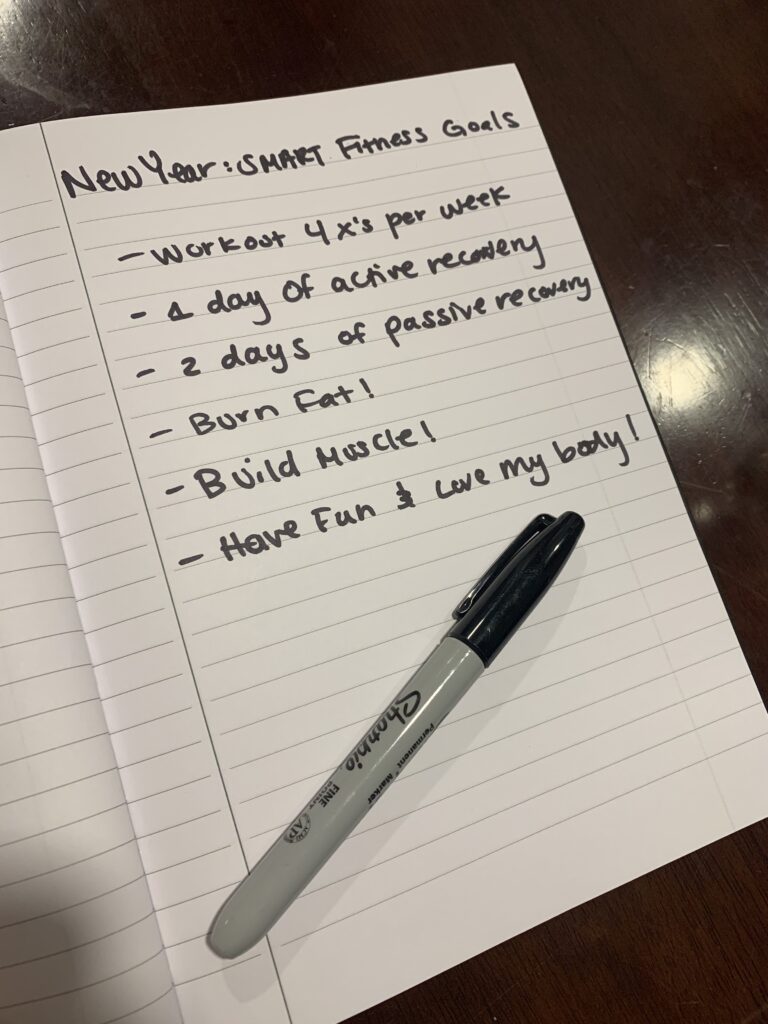 New Year: SMART Fitness Goals
- Workout 4x's per week
- 1 day of active recovery
- 2 days of passive recovery
- Burn Fat!
- Build Muscle!
- Have Fun & Love my body!
Sharpie
Permanent Marker
FINE
POINT
AP